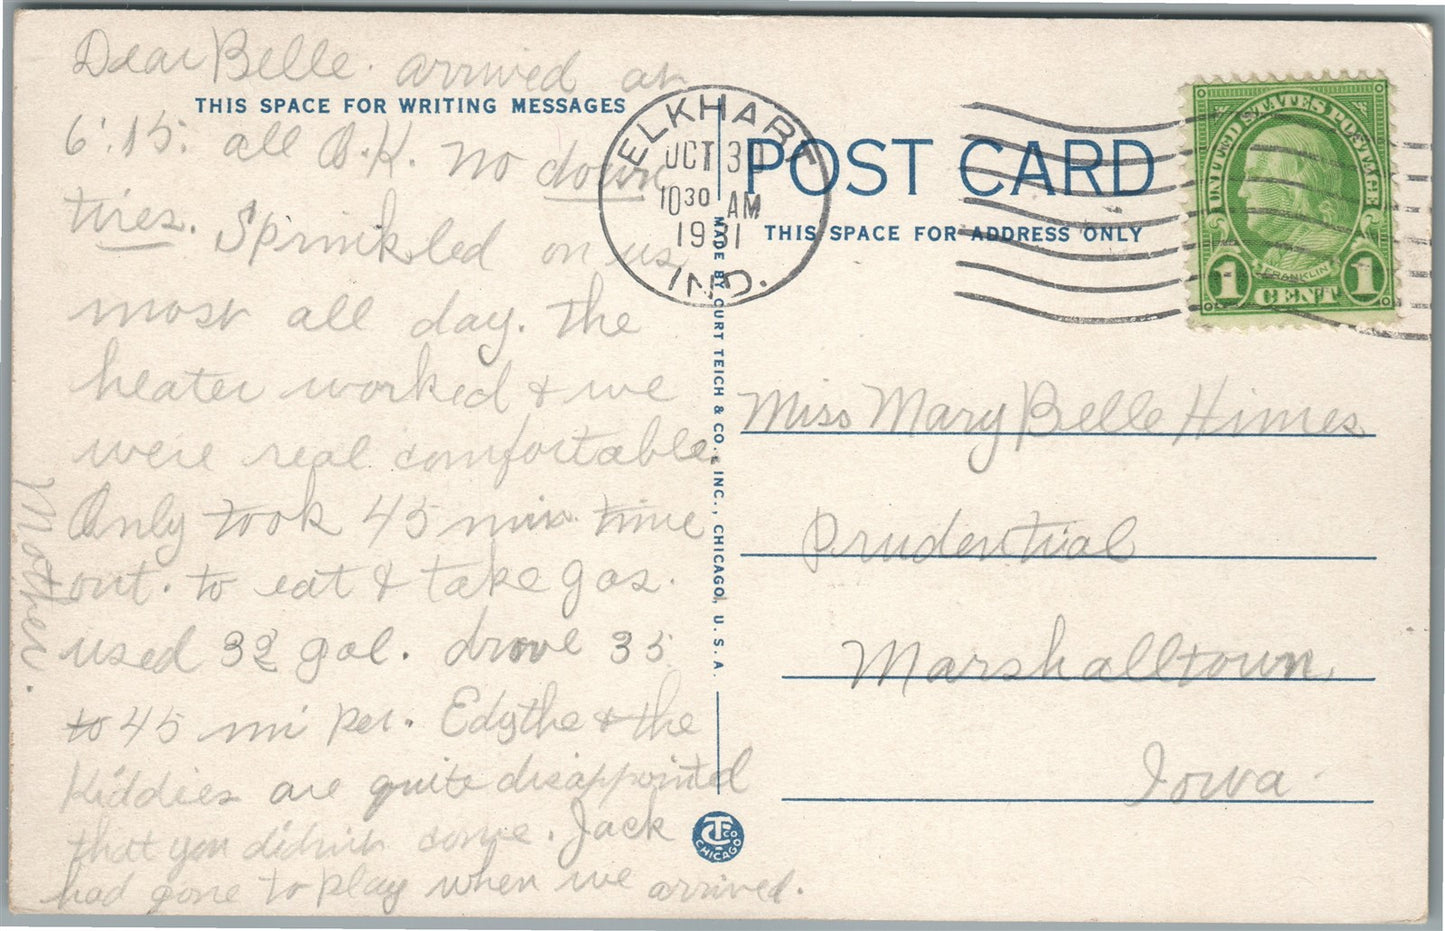 Dear Belle. arrived at
THIS SPACE FOR WRITING MESSAGES
6:15. all O.K. no down
tires. Sprinkled on us
most all day. The
heater worked & we
were real comfortable.
Only took 45 min. time
out. to eat & take gas.
used 32 gal. drove 35
to 45 mi per. Edythe & the
Kiddies are quite disappointed
that you didnt come. Jack
had gone to play when we arrived.
Mother.
ELKHART
OCT 30
10 30 AM
1931
IND.
MADE BY CURT TEICH & CO., INC., CHICAGO, U. S. A.
CT CO
CHICAGO
POST CARD
THIS SPACE FOR ADDRESS ONLY
UNITED STATES POSTAGE
FRANKLIN
1 CENT 1
Miss Mary Belle Himes
Prudential
Marshalltown,
Iowa